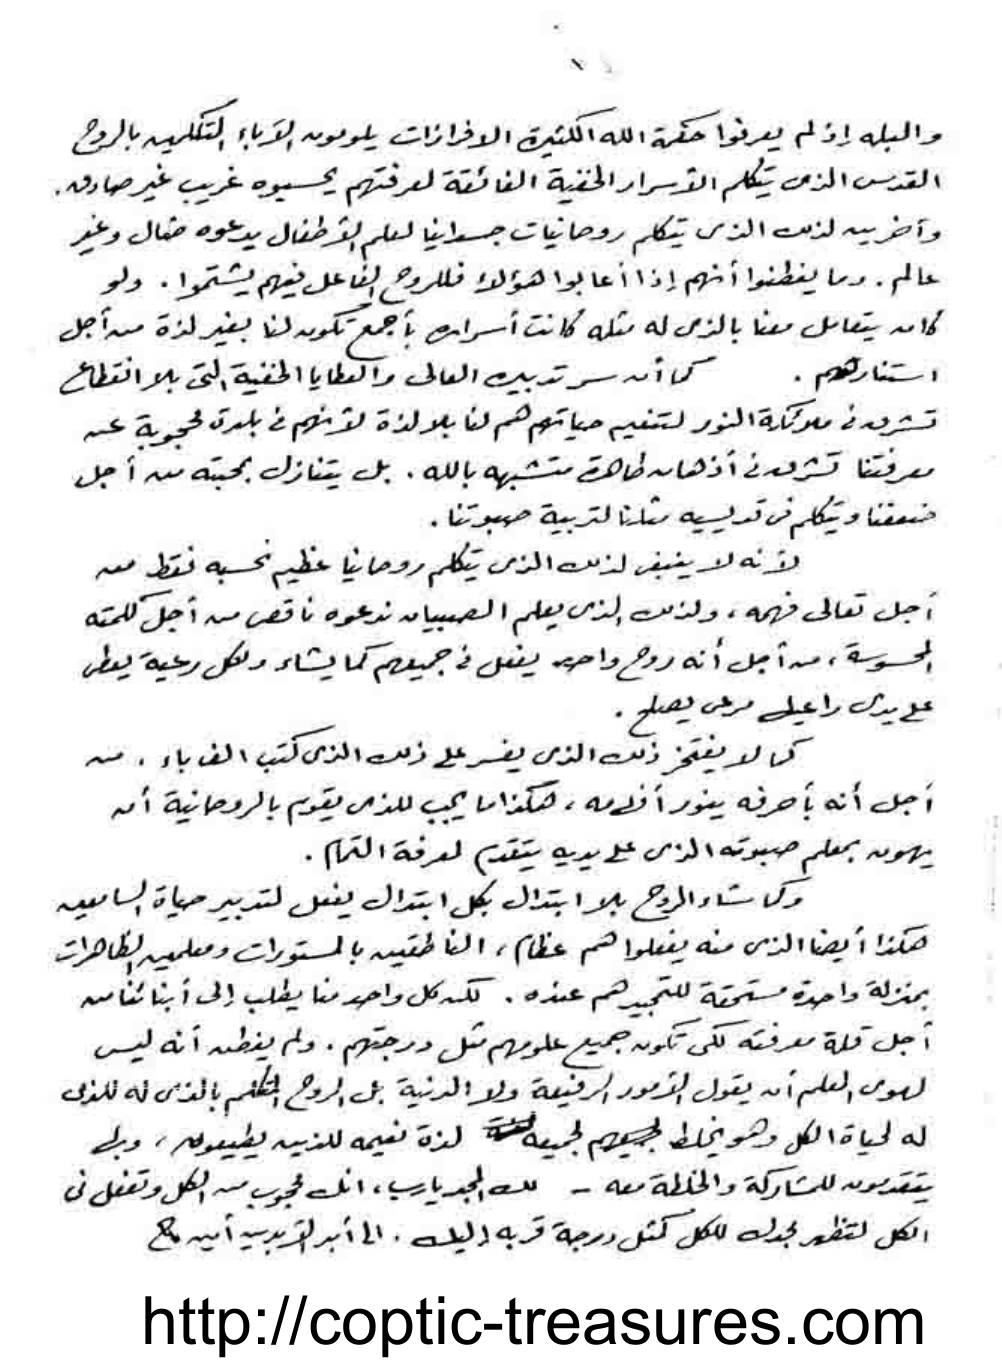 والبله إذ لم يعرفوا حكمة الله الكثيرة الافرازات يلومون الآباء المتكلمين بالروح
القدس الذى يتكلم الأسرار الخفية الفائقة لمعرفتهم يحسبوه غريب غير صادق.
وآخرين لذلك الذى يتكلم روحانيات جسدانيا لعلم الأطفال يدعوه ضال وغير
عالم. وما يفطنوا أنهم إذا أعابوا هؤلاء فللروح الفاعل فيهم يشتموا. ولو
كان يتعامل معنا بالذى له مثله كانت أسراره بأجمع تكون لنا بغير لذة من أجل
استنارهم. كما أن سر تدبيره العالى والعطايا الخفية التى بلا انقطاع
تشرق فى ملائكة النور لتنعيم حياتهم هم لنا بلا لذة لأنهم فى بلدة محجوبة عن
معرفتنا تشرق فى أذهان طاهرة متشبهه بالله. بل يتنازل بمحبته من أجل
ضعفنا ويتكلم فى قديسيه مثلنا لتربية صبوتنا.
لأنه لا ينبغى لذلك الذى يتكلم روحانيا عظيم نحسبه فقط من
أجل تعالى فهمه، ولذلك الذى يعلم الصبيان ندعوه ناقص من أجل كلمته
المحسوسة، من أجل أنه روح واحد يفعل فى جميعهم كما يشاء ولكل رعية يعطى
على يدى راعيها مرعى يصلح.
كما لا يفتخر ذلك الذى يفسر على ذلك الذى كتب الف باء. من
أجل أنه بأحرفه ينور أفهامه، هكذا ما يجب للذى يقوم بالروحانية أن
يهون بمعلم صبوته الذى على يديه يتقدم لمعرفة التمام.
وكما شاء الروح بلا ابتدال بكل ابتدال يفعل لتدبير حياة السامعين
هكذا أيضا الذى منه يفعلوا هم عظام، الناطقين بالمستورات ومعلمين الظاهرات
بمنزلة واحدة مستحقة للتمجيد هم عنده. لكن كل واحد منا يطلب إلى أبنائنا من
أجل قلة معرفته لكى تكون جميع علومهم مثل درجتهم. ولم يفطن أنه ليس
لهوى المعلم أن يقول الأمور الرفيعة ولا الدنية بل الروح المتكلم بالذى له للذى
له لحياة الكل وهو يخلط لجميعهم لذة نعيمه للذين يطيعون، وبه
يتقدمون للمشاركة والخلطة معه – لك المجد يارب، انك محجوب من الكل وتفعل فى
الكل لتظهر مجدك للكل كمثل درجة قربه إليك. الى أبد الآبدين أمين
http://coptic-treasures.com